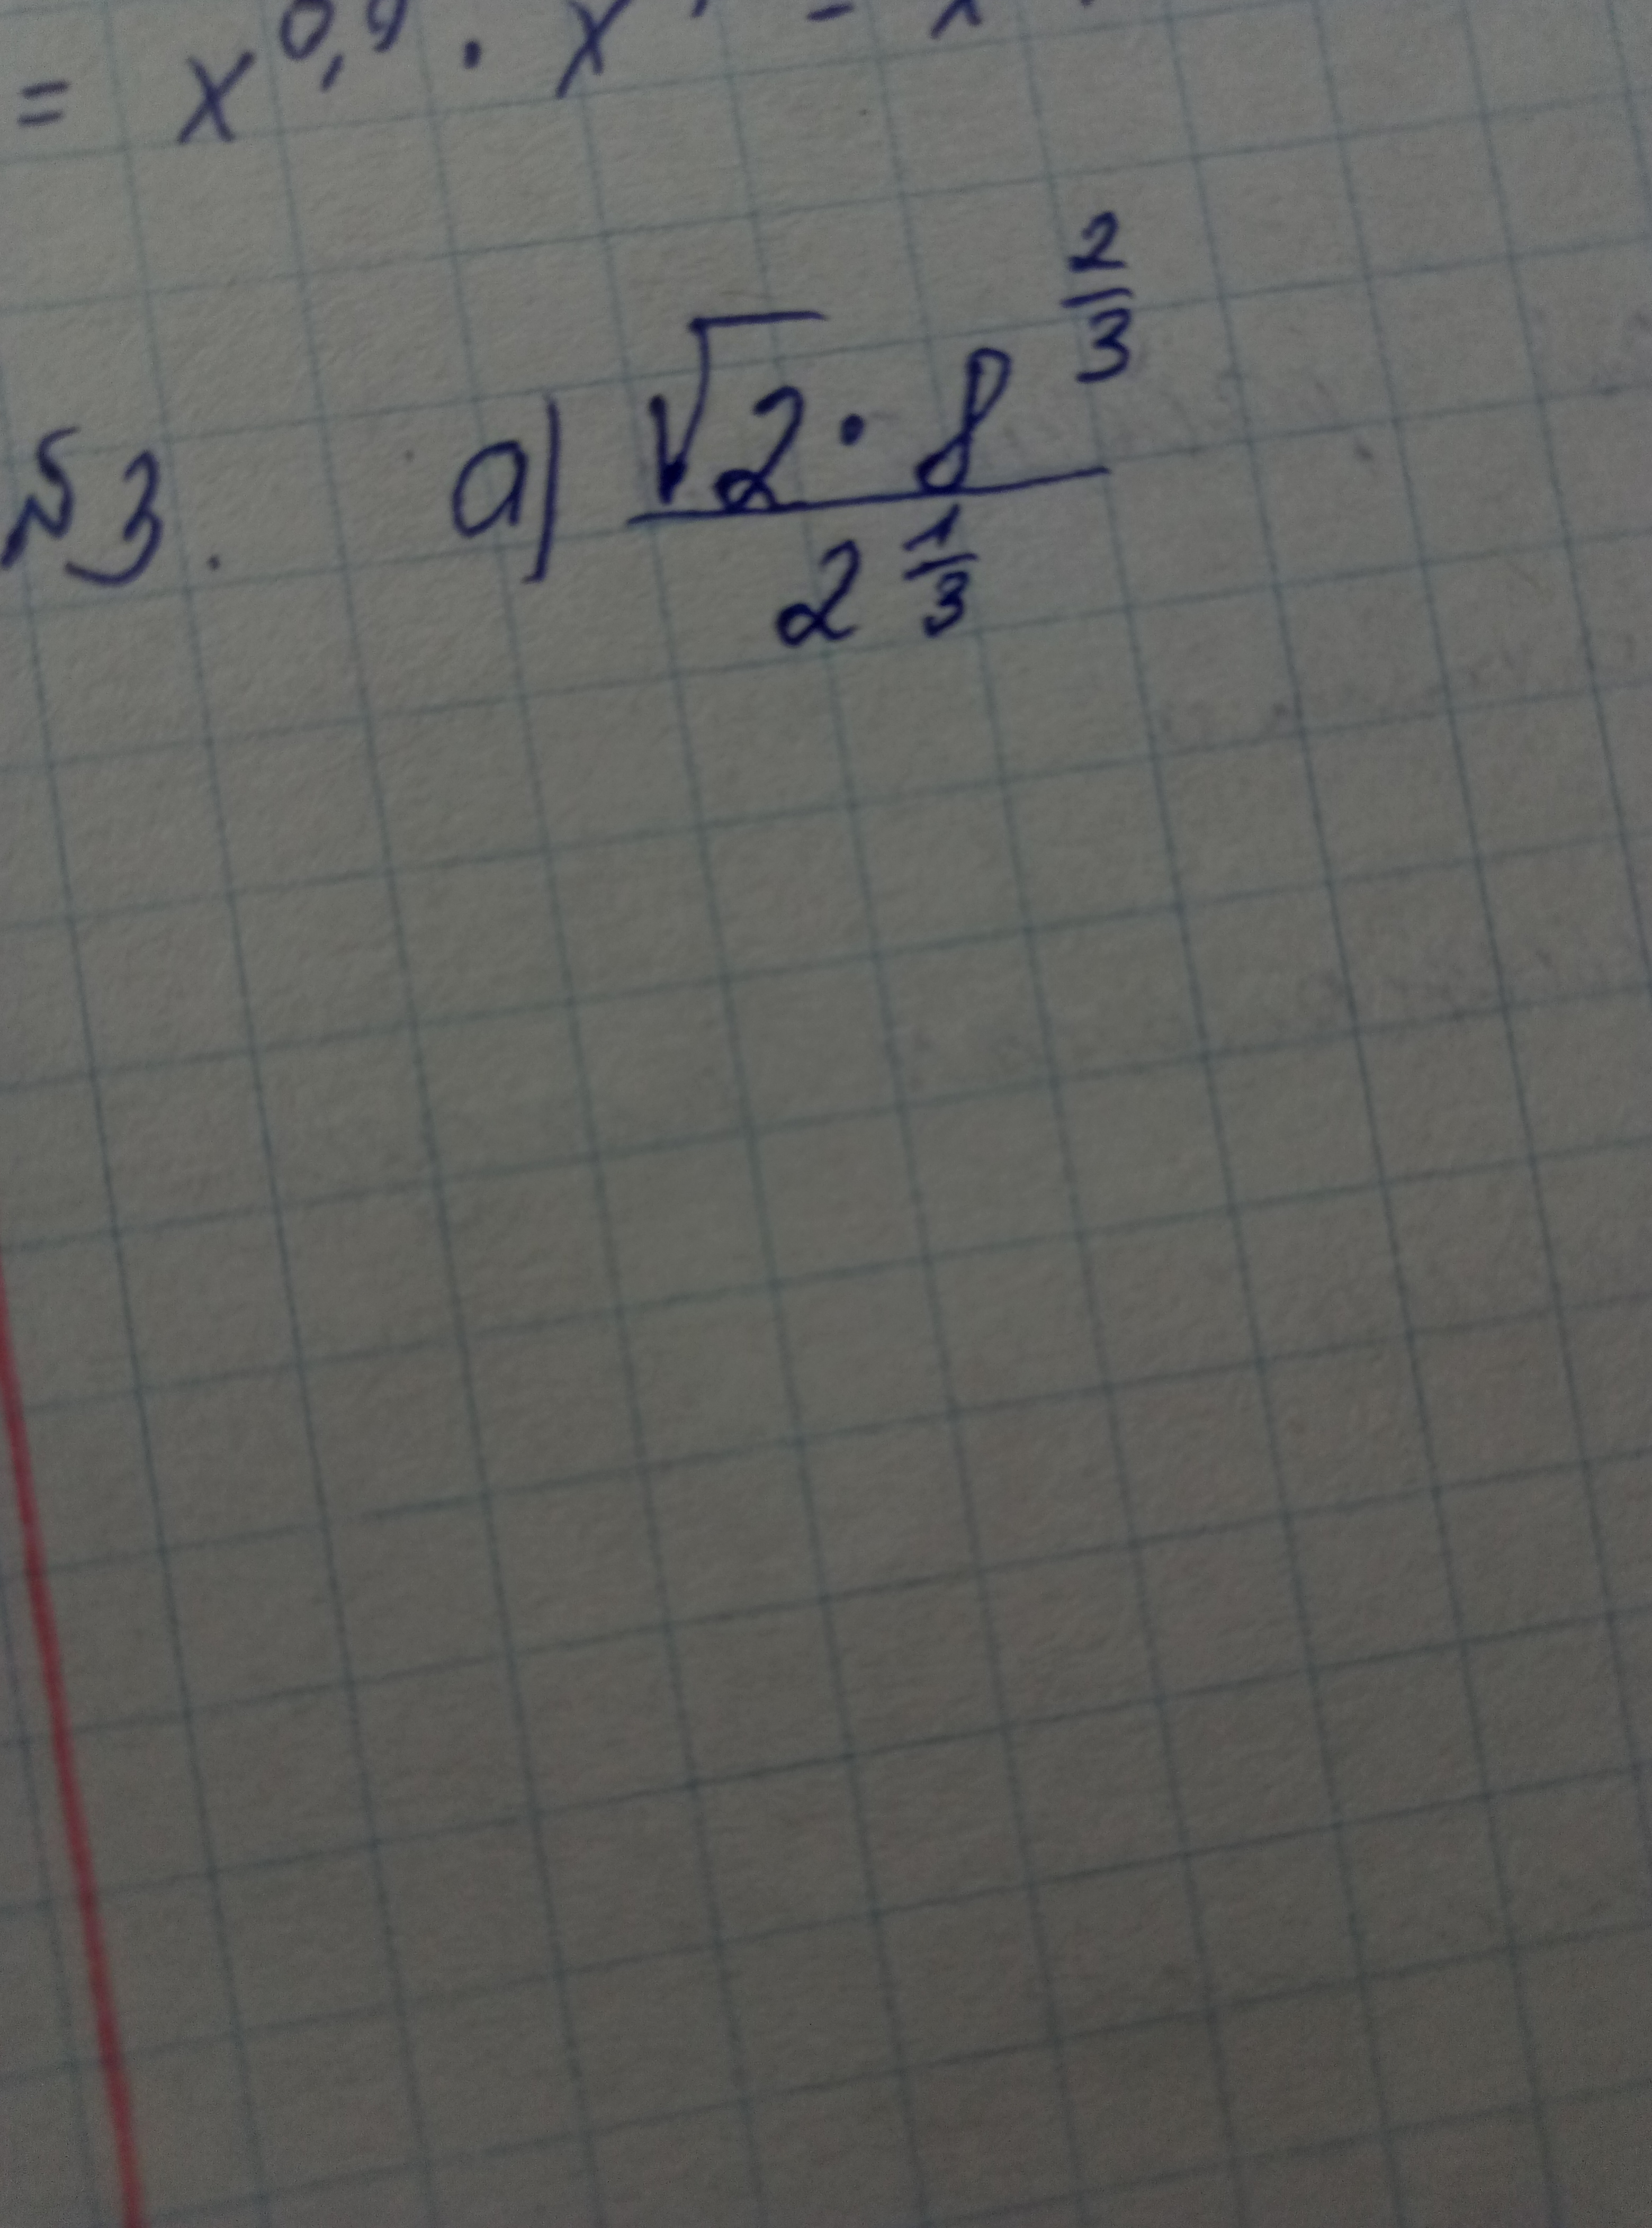 = x^0,9 · x
№3. a) (√2 · 8^(2/3)) / (2^(1/3))